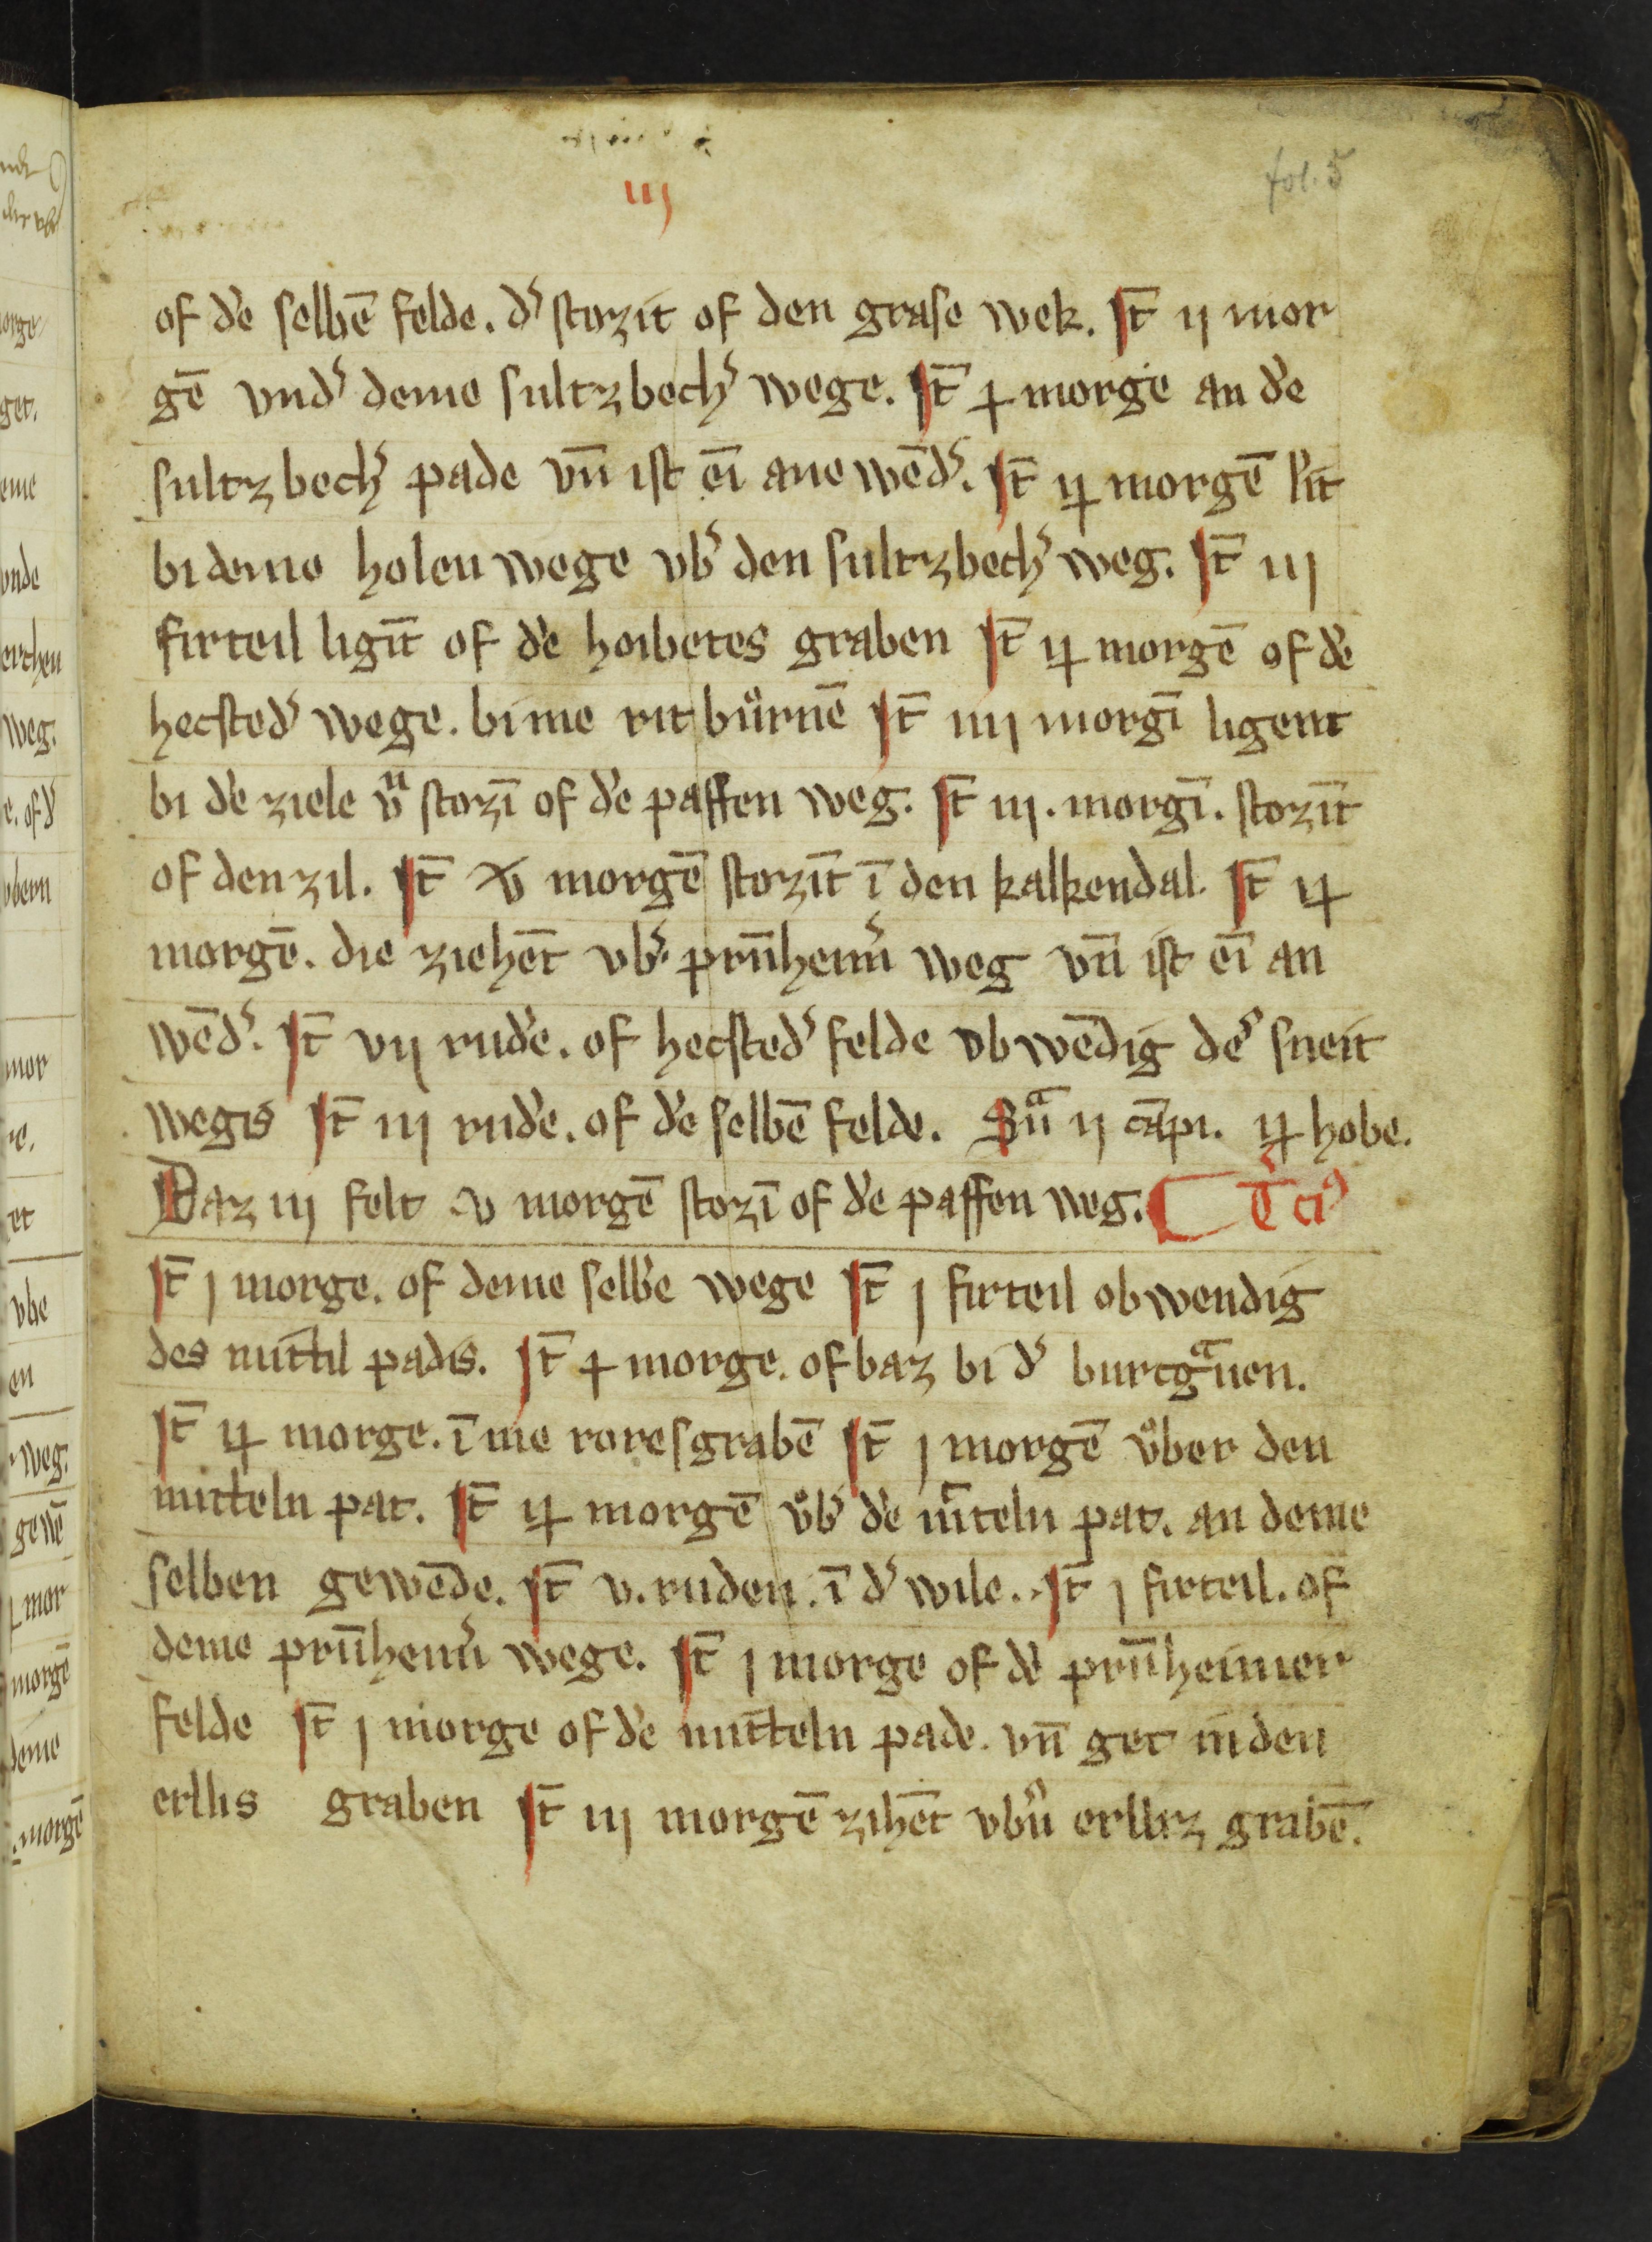 fol. 5
iij
of dē selbē felde. dʾ stozit of den grase wek. Jt̄ ij mor
gē vndʾ deme sultzbechʾ wege. Jt̄ ɟ morge an dē
sultzbechʾ pade vn̄ ist eī ane wēdʾ. Jt̄ iɟ morgē lit
bi deme holen wege vbʾ den sultzbechʾ weg. Jt̄ iij
firteil ligīt of dē hoibetes graben Jt̄ iɟ morgē of dē
hecstedʾ wege. bi me rit bůrnē Jt̄ iiij morgī ligent
bi dē ziele vn̄ stozī of dē paffen weg. Jt̄ iij. morgī. stozīt
of den zil. Jt̄ xv morgē stozīt ī den kalkendal. Jt̄ iɟ
morgē. die ziehēt vbʾ. prūheimʾ weg vn̄ ist eī an
wēdʾ. Jt̄ vij rudē. of hecstedʾ felde obwēdig des sneit
wegis Jt̄ iij rudē. of dē selbē felde. Sūᵃ ij cāpi. iɟ hobe.
Daz iij felt v morgē stozī of dē paffen weg. Tʾciꝰ
Jt̄ j morge. of deme selbē wege Jt̄ j firteil obwendig
des mittil padis. Jt̄ ɟ morge. of baz bi dʾ burcgᵃuen.
Jt̄ iɟ morge. ī me roresgrabē Jt̄ j morgē vͦber den
mitteln pat. Jt̄ iɟ morgē vͦbʾ dē mītteln pat. an deme
selben gewēde. Jt̄ v. ruden. ī dʾ wile. Jt̄ j firteil. of
deme prūheimʾ wege. Jt̄ j morge of dē prūheimer
felde Jt̄ j morge of dē mitteln pade. vn̄ get in den
erllis graben Jt̄ iij morgē zihēt vbʾn erlliz grabē.